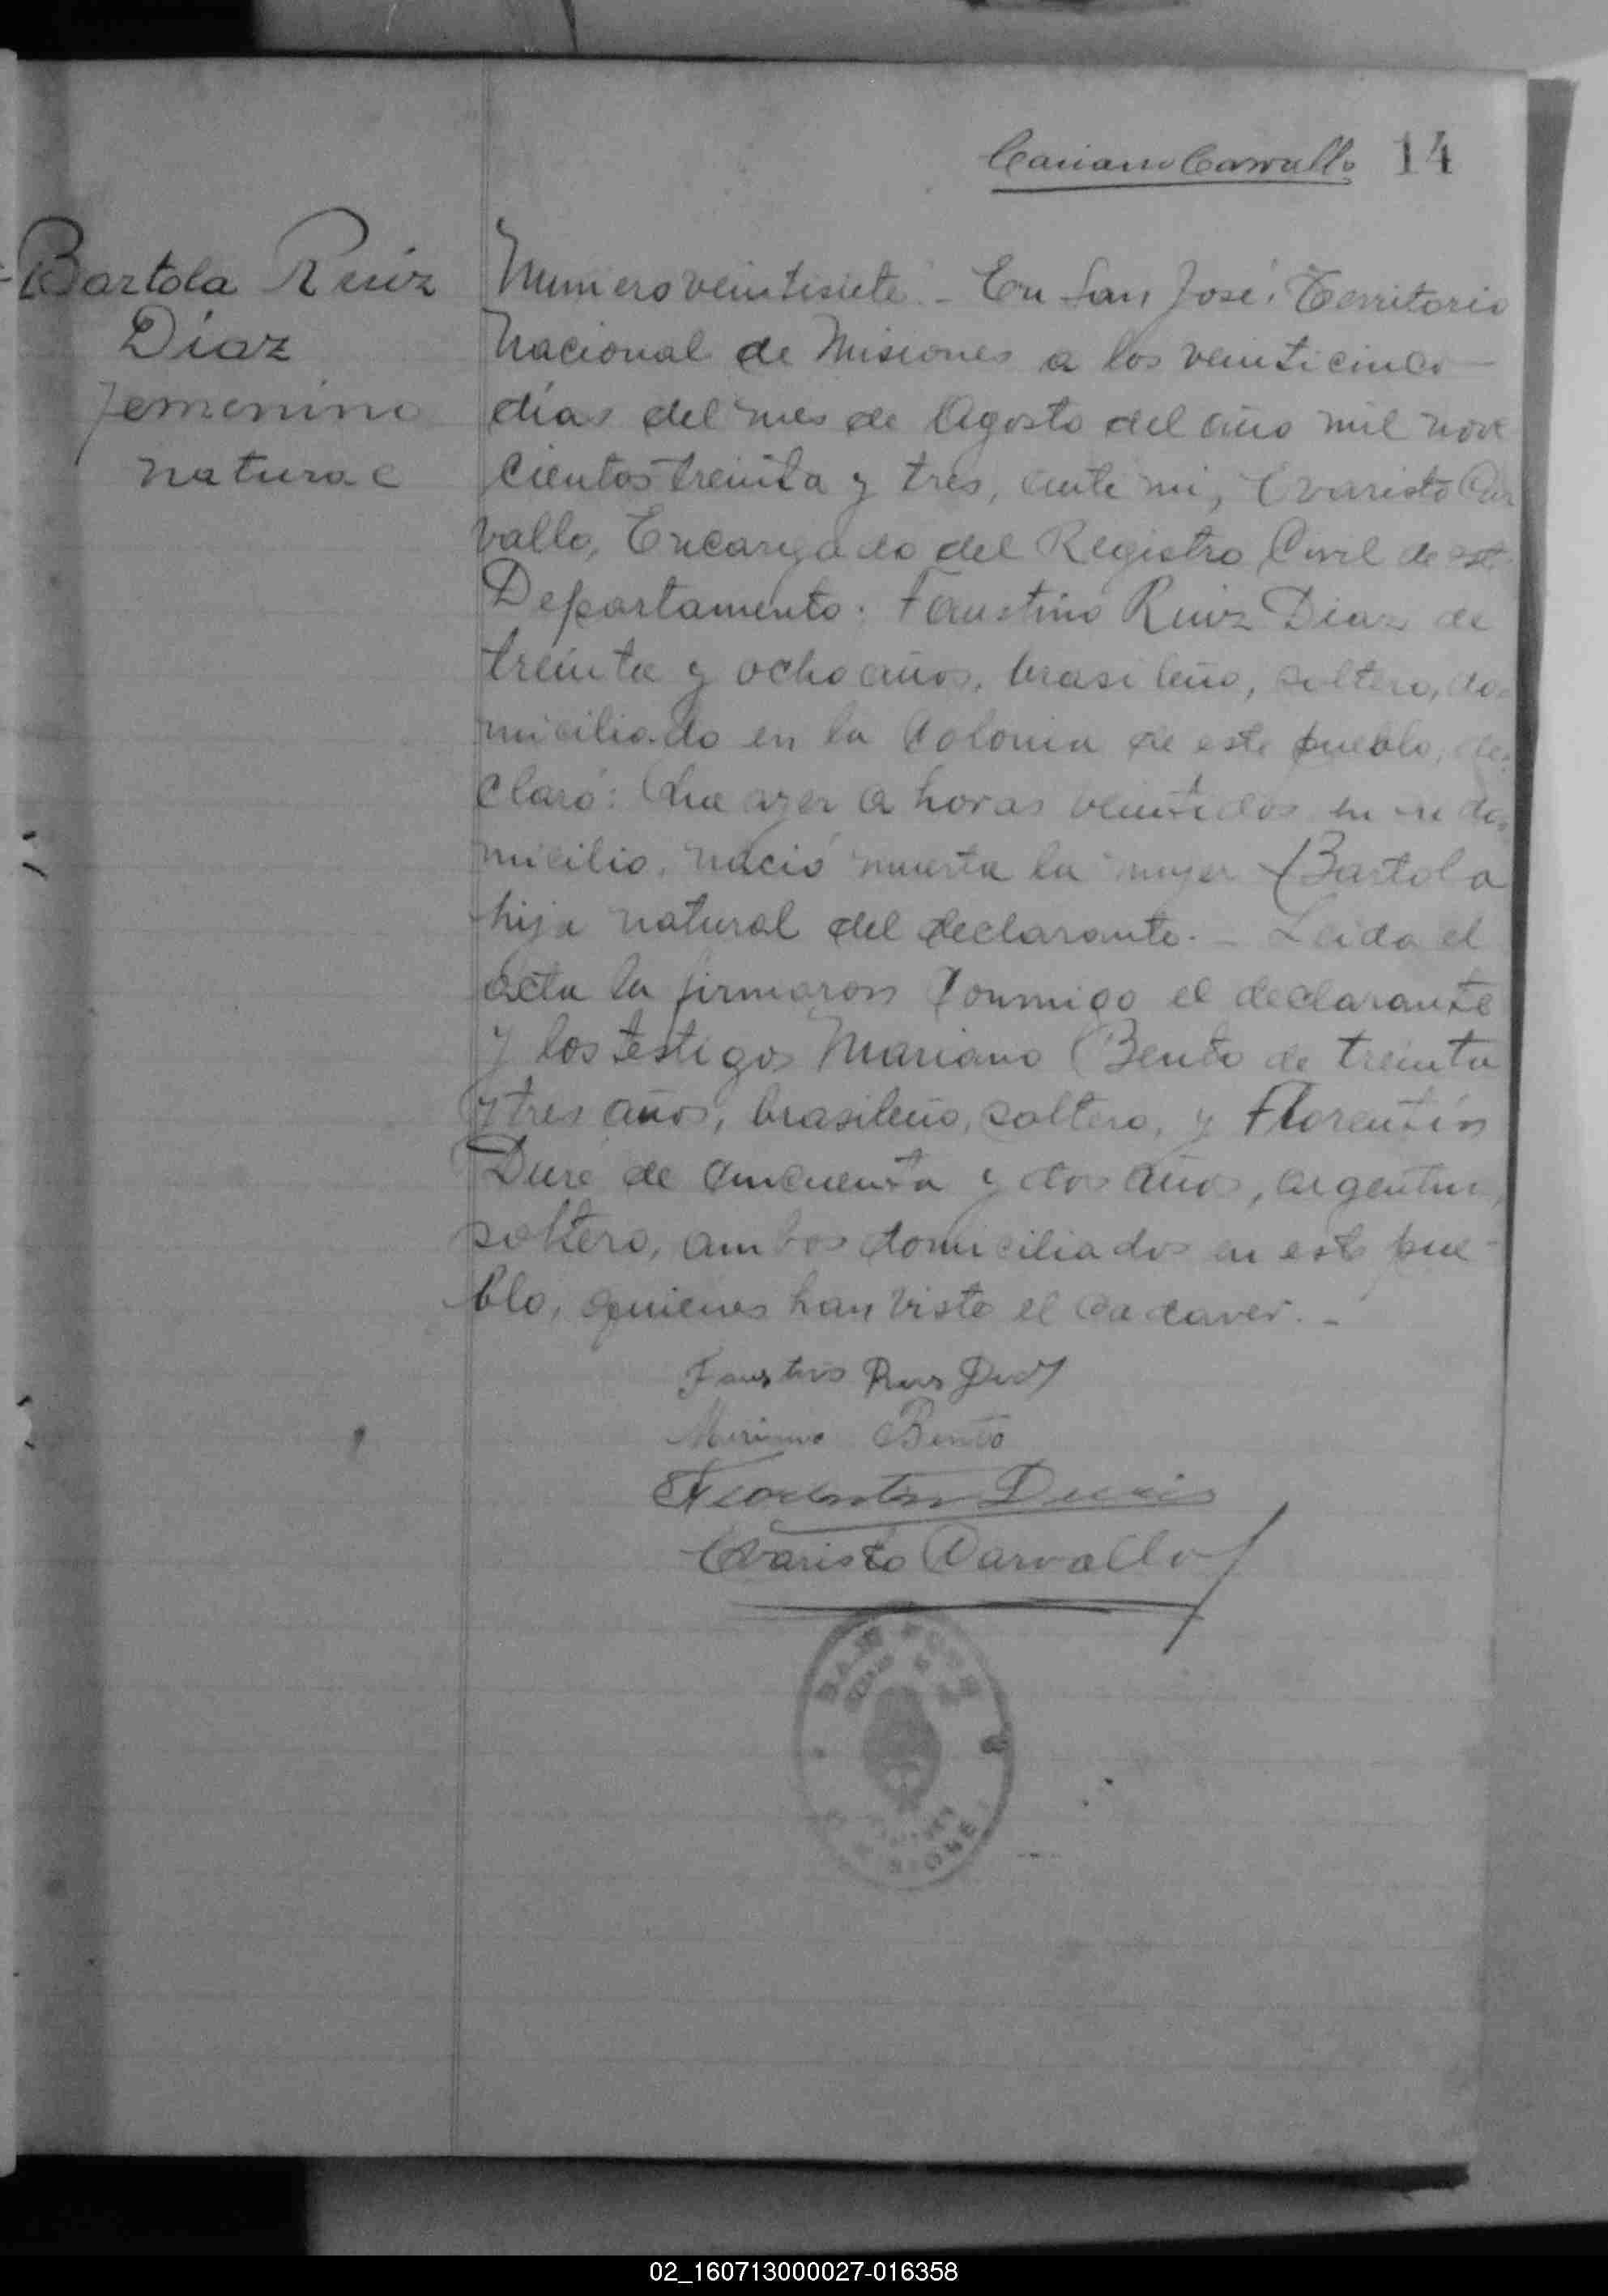 Carvallo 14
Bartola Ruiz
Díaz
femenino
natural
Numero veintisiete.- En San José, Territorio
Nacional de Misiones a los veinticinco
días del mes de Agosto del año mil nove
cientos treinta y tres, ante mi, Evaristo Car
vallo, Encargado del Registro Civil de este
Departamento: Faustino Ruiz Diaz de
treinta y ocho años, brasileño, soltero, do-
miciliado en la Colonia de este pueblo, de-
claró: Que ayer a horas veintidos en su do-
micilio, nació muerta la mujer Bartola
hija natural del declarante.- Leida el
acta la firmaron conmigo el declarante
y los testigos Mariano Bento de treinta
y tres años, brasileño, soltero, y Florentin
Duré de cincuenta y dos años, argentino,
soltero, ambos domiciliados en este pue-
blo, quienes han visto el cadaver.-
Faustino Ruiz Diaz
Mariano Bento
Florentin
Evaristo Carvallo
02_160713000027-016358